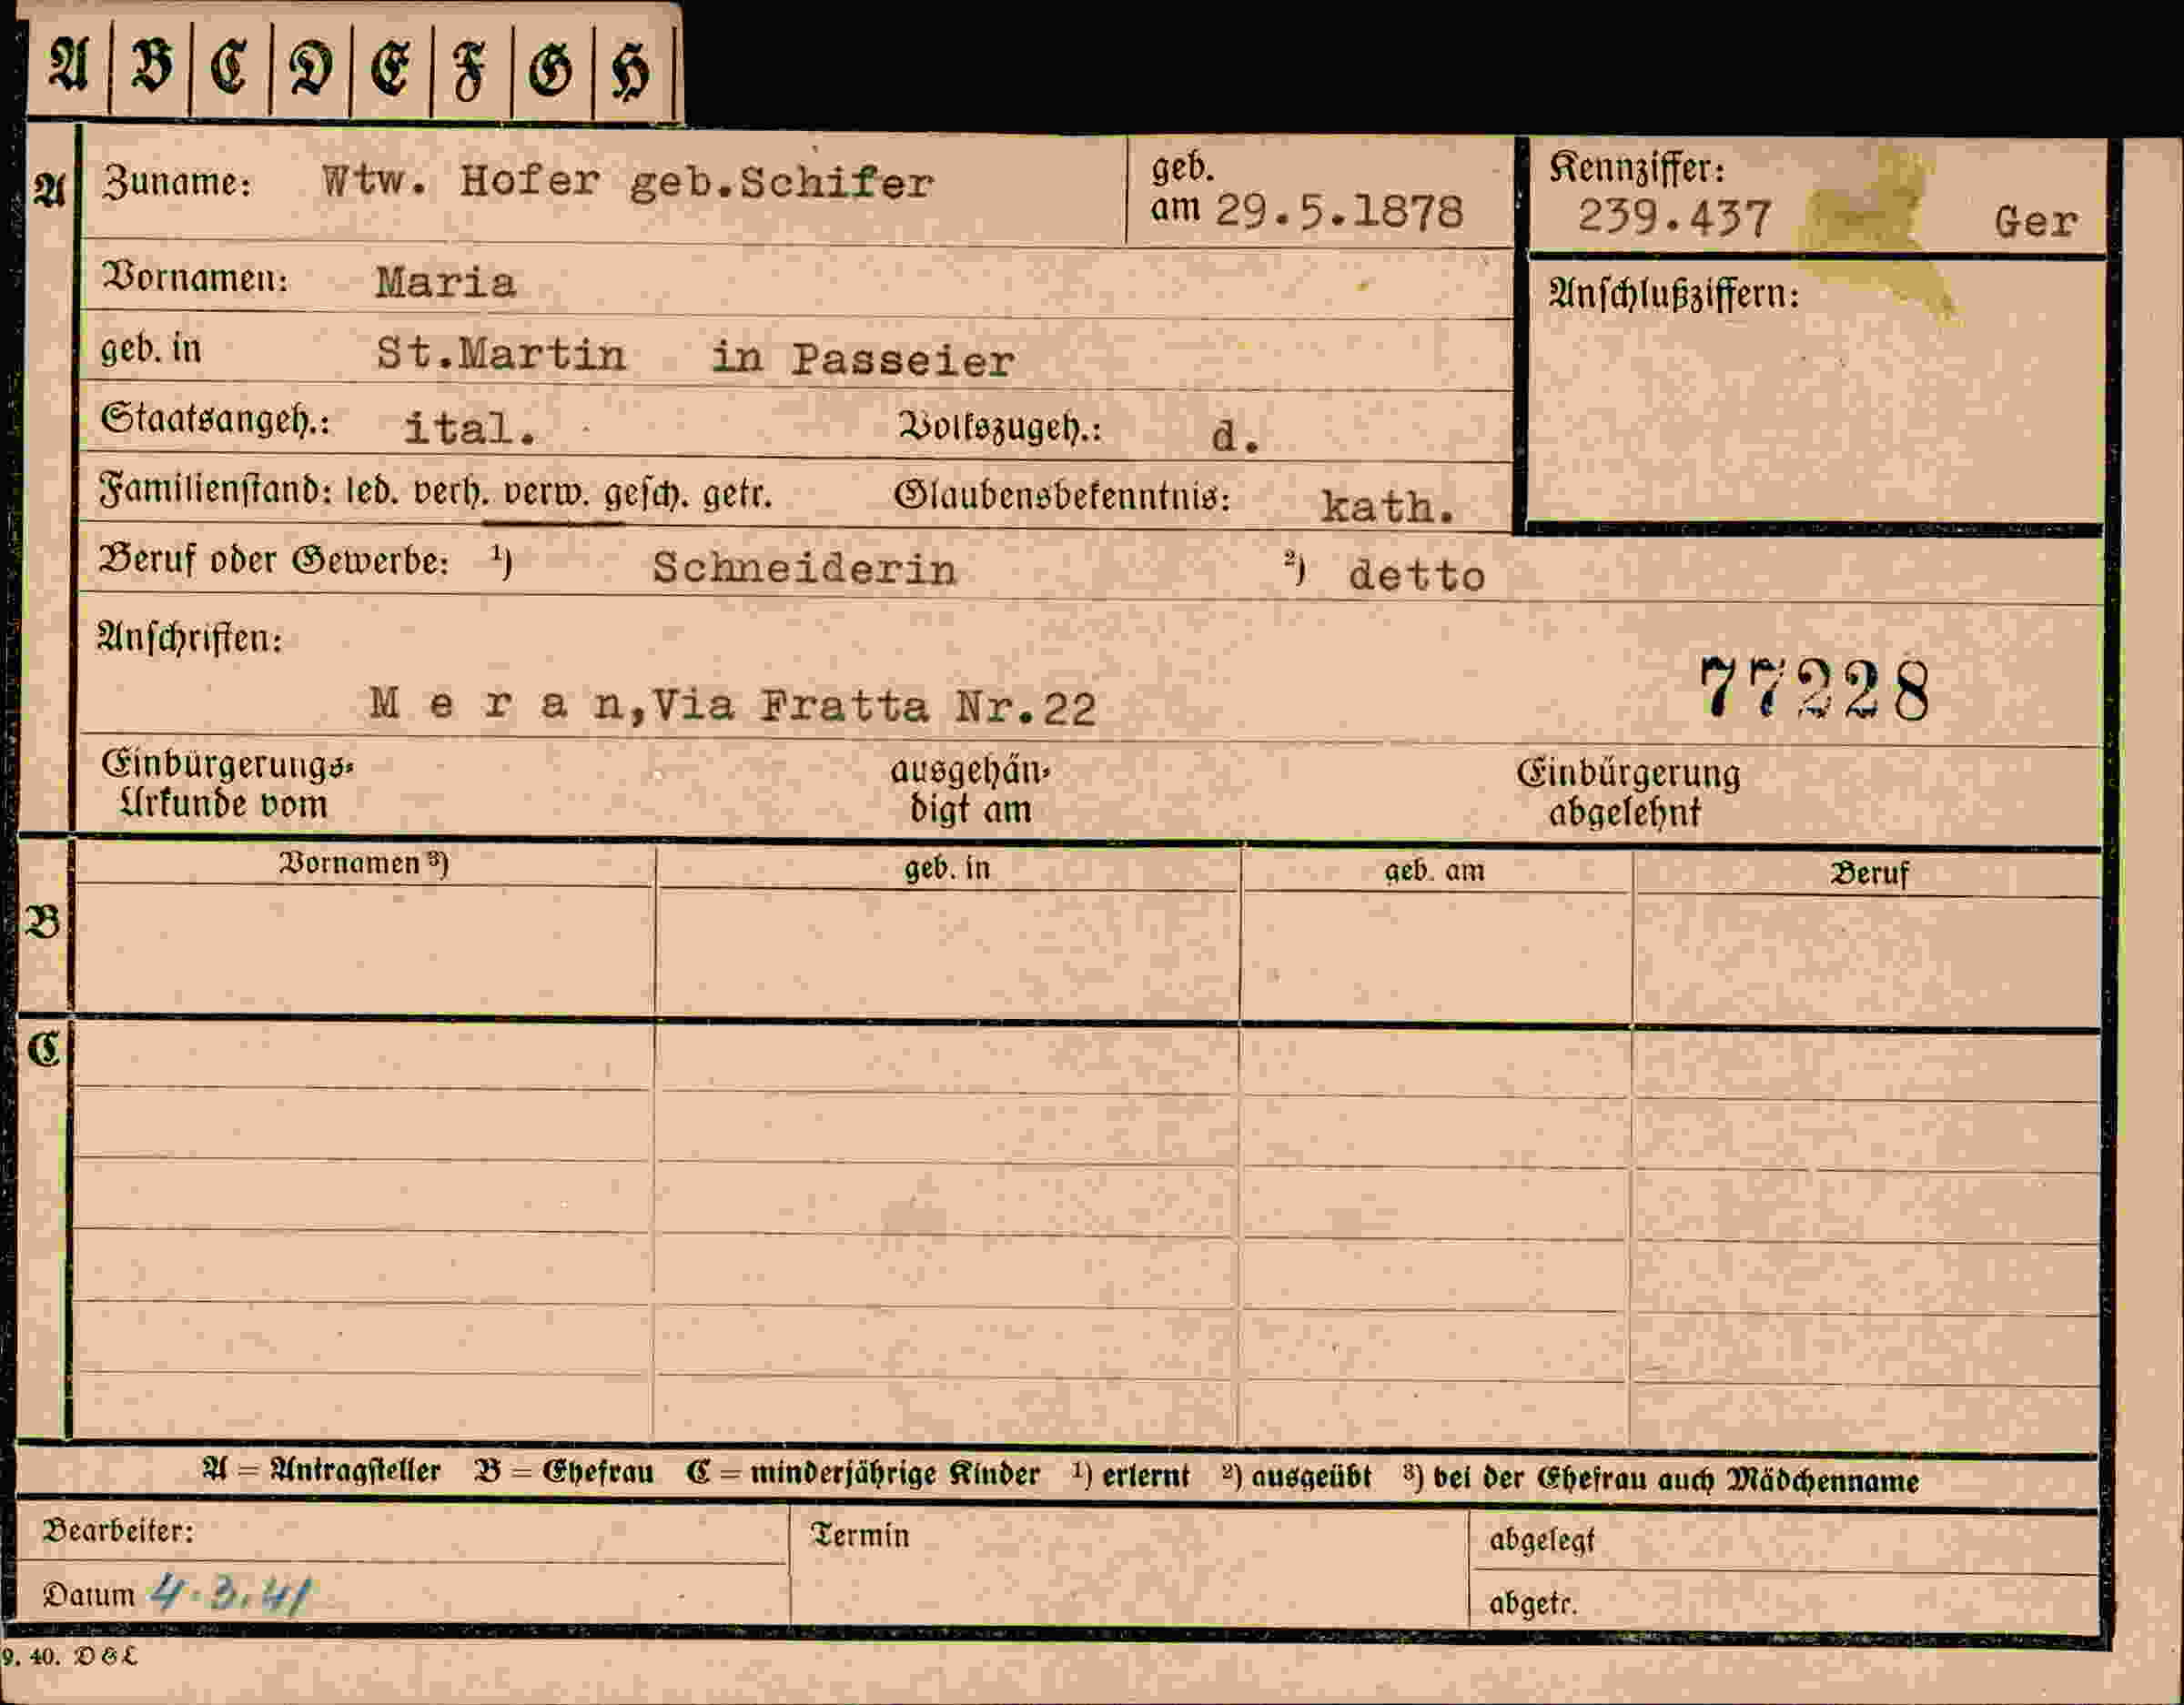 A B C D E F G H
A Zuname: Wtw. Hofer geb.Schifer geb. am 29.5.1878 Kennziffer: 239.437 Ger
Vornamen: Maria Anschlußziffern:
geb. in St.Martin in Passeier
Staatsangeh.: ital. Volkszugeh.: d.
Familienstand: led. verh. verw. gesch. getr. Glaubensbekenntnis: kath.
Beruf oder Gewerbe: ¹) Schneiderin ²) detto
Anschriften:
M e r a n,Via Fratta Nr.22 77228
Einbürgerungs- ausgehän- Einbürgerung
Urkunde vom digt am abgelehnt
Vornamen ³) geb. in geb. am Beruf
B
C
A = Antragsteller B = Ehefrau C = minderjährige Kinder ¹) erlernt ²) ausgeübt ³) bei der Ehefrau auch Mädchenname
Bearbeiter: Termin abgelegt
Datum 4.3.41 abgetr.
9. 40. D & L